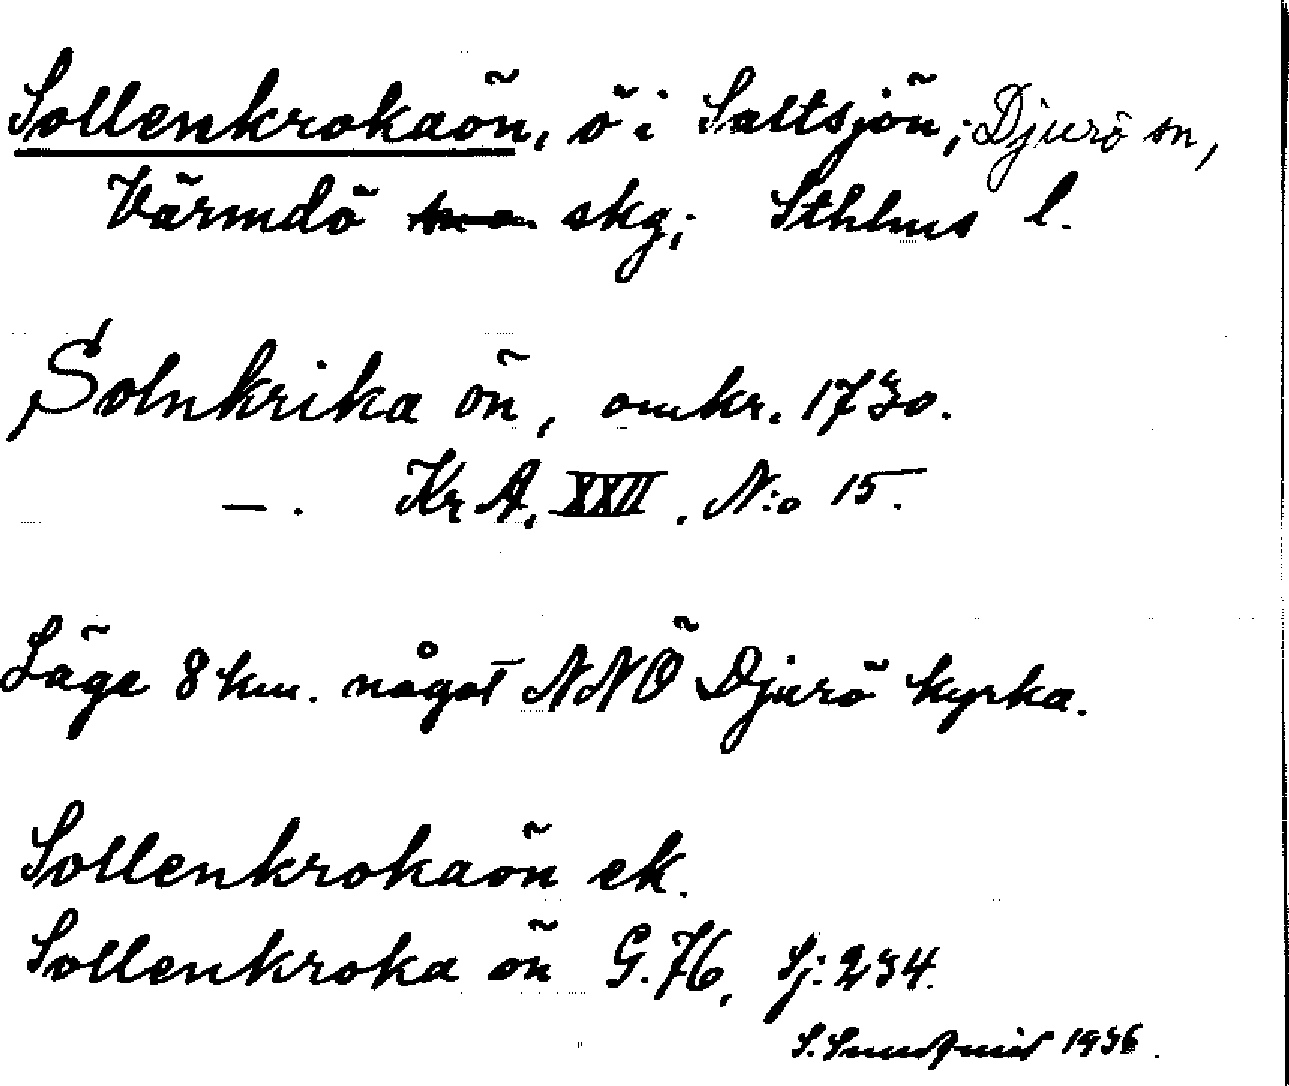 Sollenkrokaön, ö i Saltsjön; Djurö sn,
Värmdö skg; Sthlms l.
Solnkrika ön, omkr. 1730.
—. Kr A. XXII. N:o 15.
Läge 8 km. något NNÖ Djurö kyrka.
Sollenkrokaön ek.
Sollenkroka ön G. 76, Sj: 234.
S. 1936.